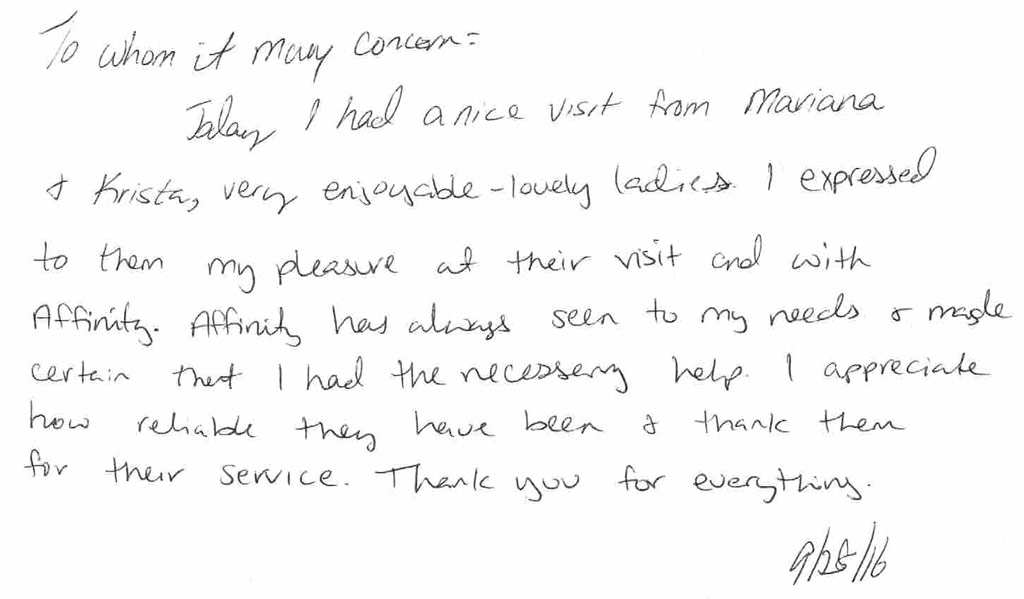 To whom it may concern:
Today I had a nice visit from Mariana
& Krista, very enjoyable - lovely ladies. I expressed
to them my pleasure at their visit and with
Affinity. Affinity has always seen to my needs & made
certain that I had the necessary help. I appreciate
how reliable they have been & thank them
for their service. Thank you for everything.
9/28/16